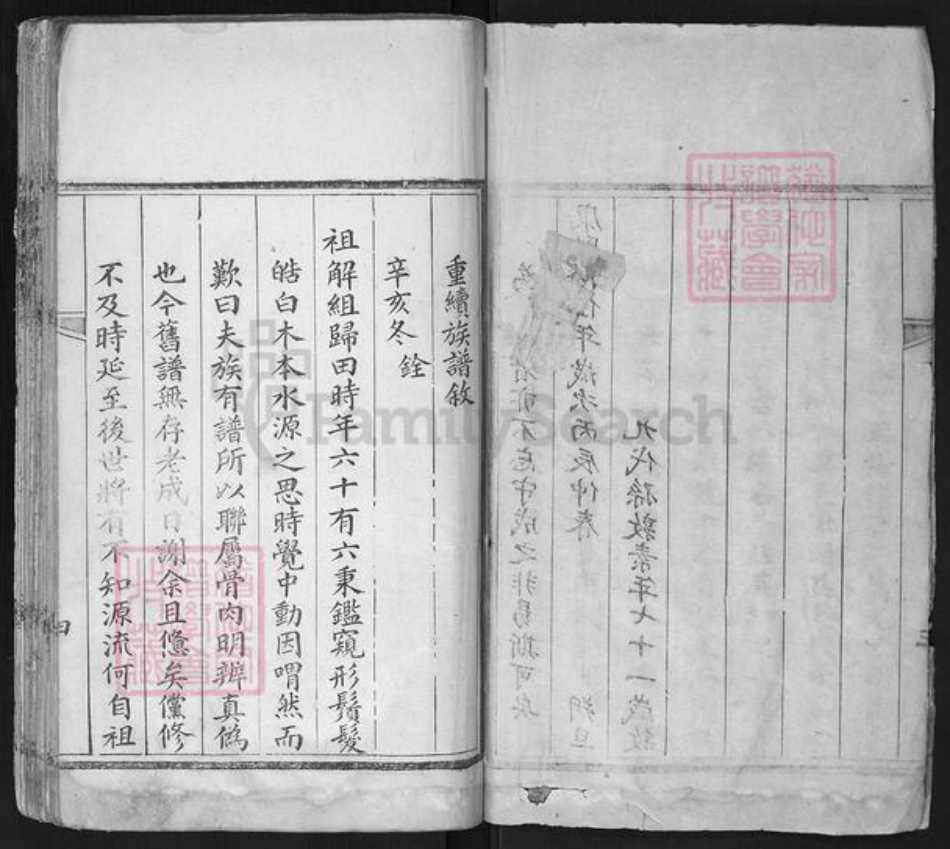 重續族譜敘
辛亥冬 銓
祖解組歸田時年六十有六秉鑑窺形鬚髮
皓白木本水源之思時覺中動因喟然而
歎曰夫族有譜所以聯屬骨肉明辨真僞
也今舊譜無存老成日謝余且憊矣儻修
不及時延至後世將有不知源流何自祖
四
三
九代孫敦素年七十一歲敘
年歲次丙辰仲春 朔旦
者亦不忘守成之非易斯可矣
譜學會
FamilySearch